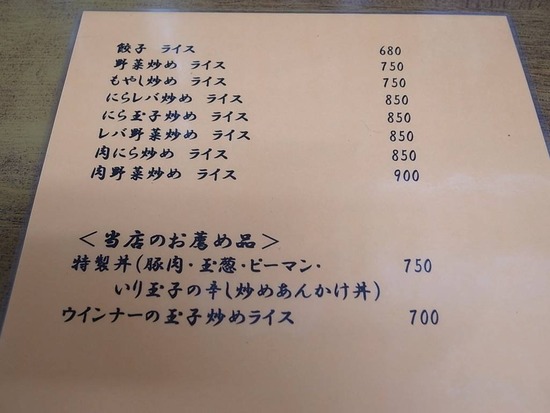 餃子 ライス 680
野菜炒め ライス 750
もやし炒め ライス 750
にらレバ炒め ライス 850
にら玉子炒め ライス 850
レバ野菜炒め ライス 850
肉にら炒め ライス 850
肉野菜炒め ライス 900
＜当店のお薦め品＞
特製丼(豚肉・玉葱・ピーマン・ 750
いり玉子の辛し炒めあんかけ丼)
ウインナーの玉子炒めライス 700